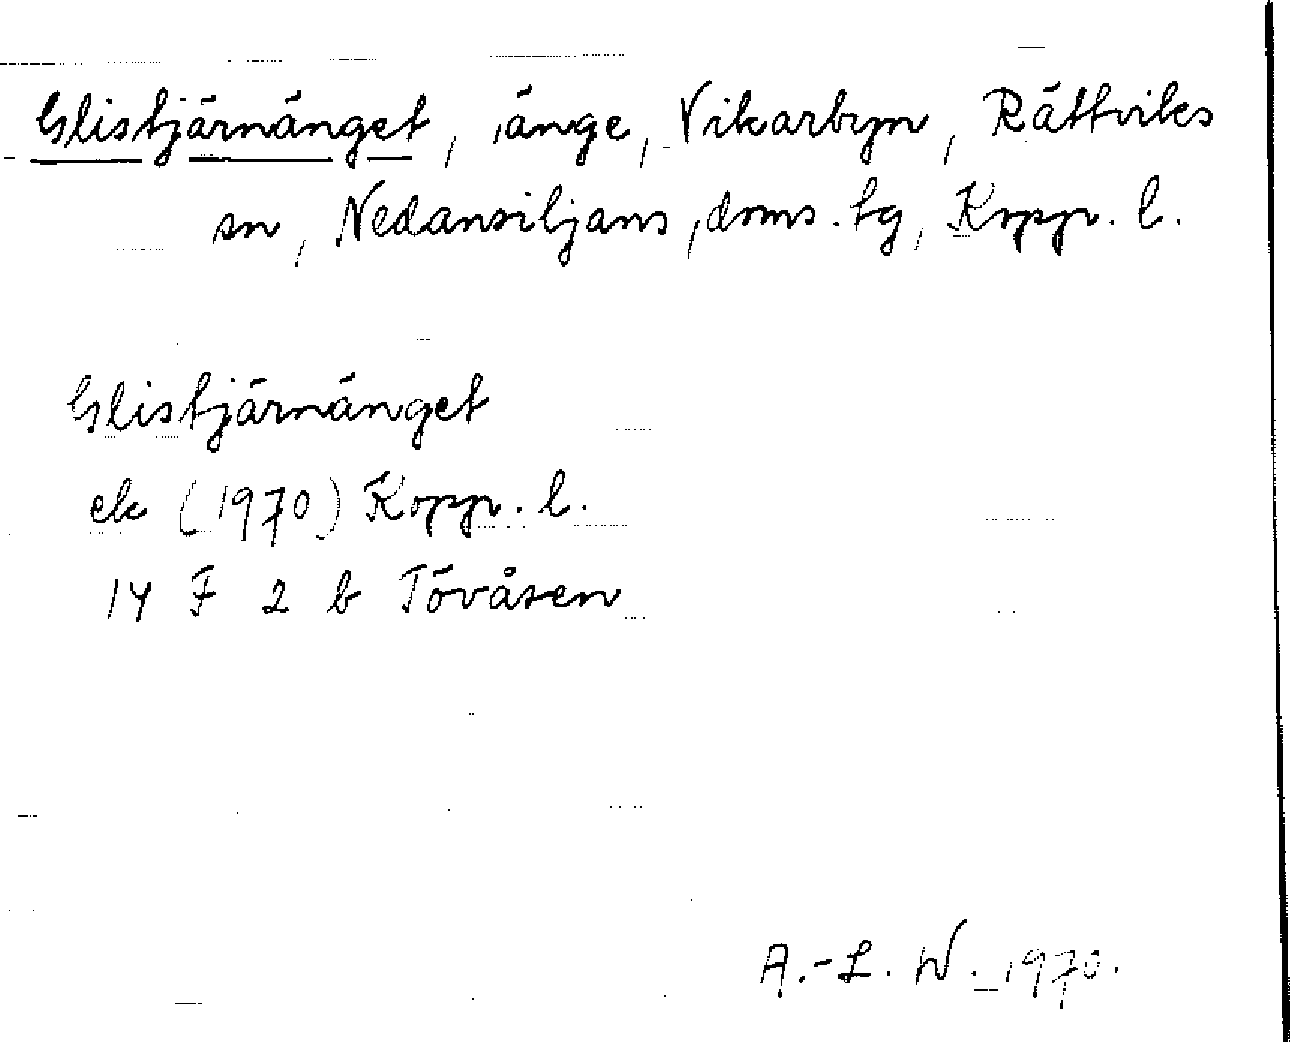 Glistjärnänget, änge, Vikarbyn, Rättviks
sn, Nedansiljans doms. tg, Kopp. l.
Glistjärnänget
ek (1970) Kopp. l.
14 F 2 b Tövåsen
A.-L. W. 1970.